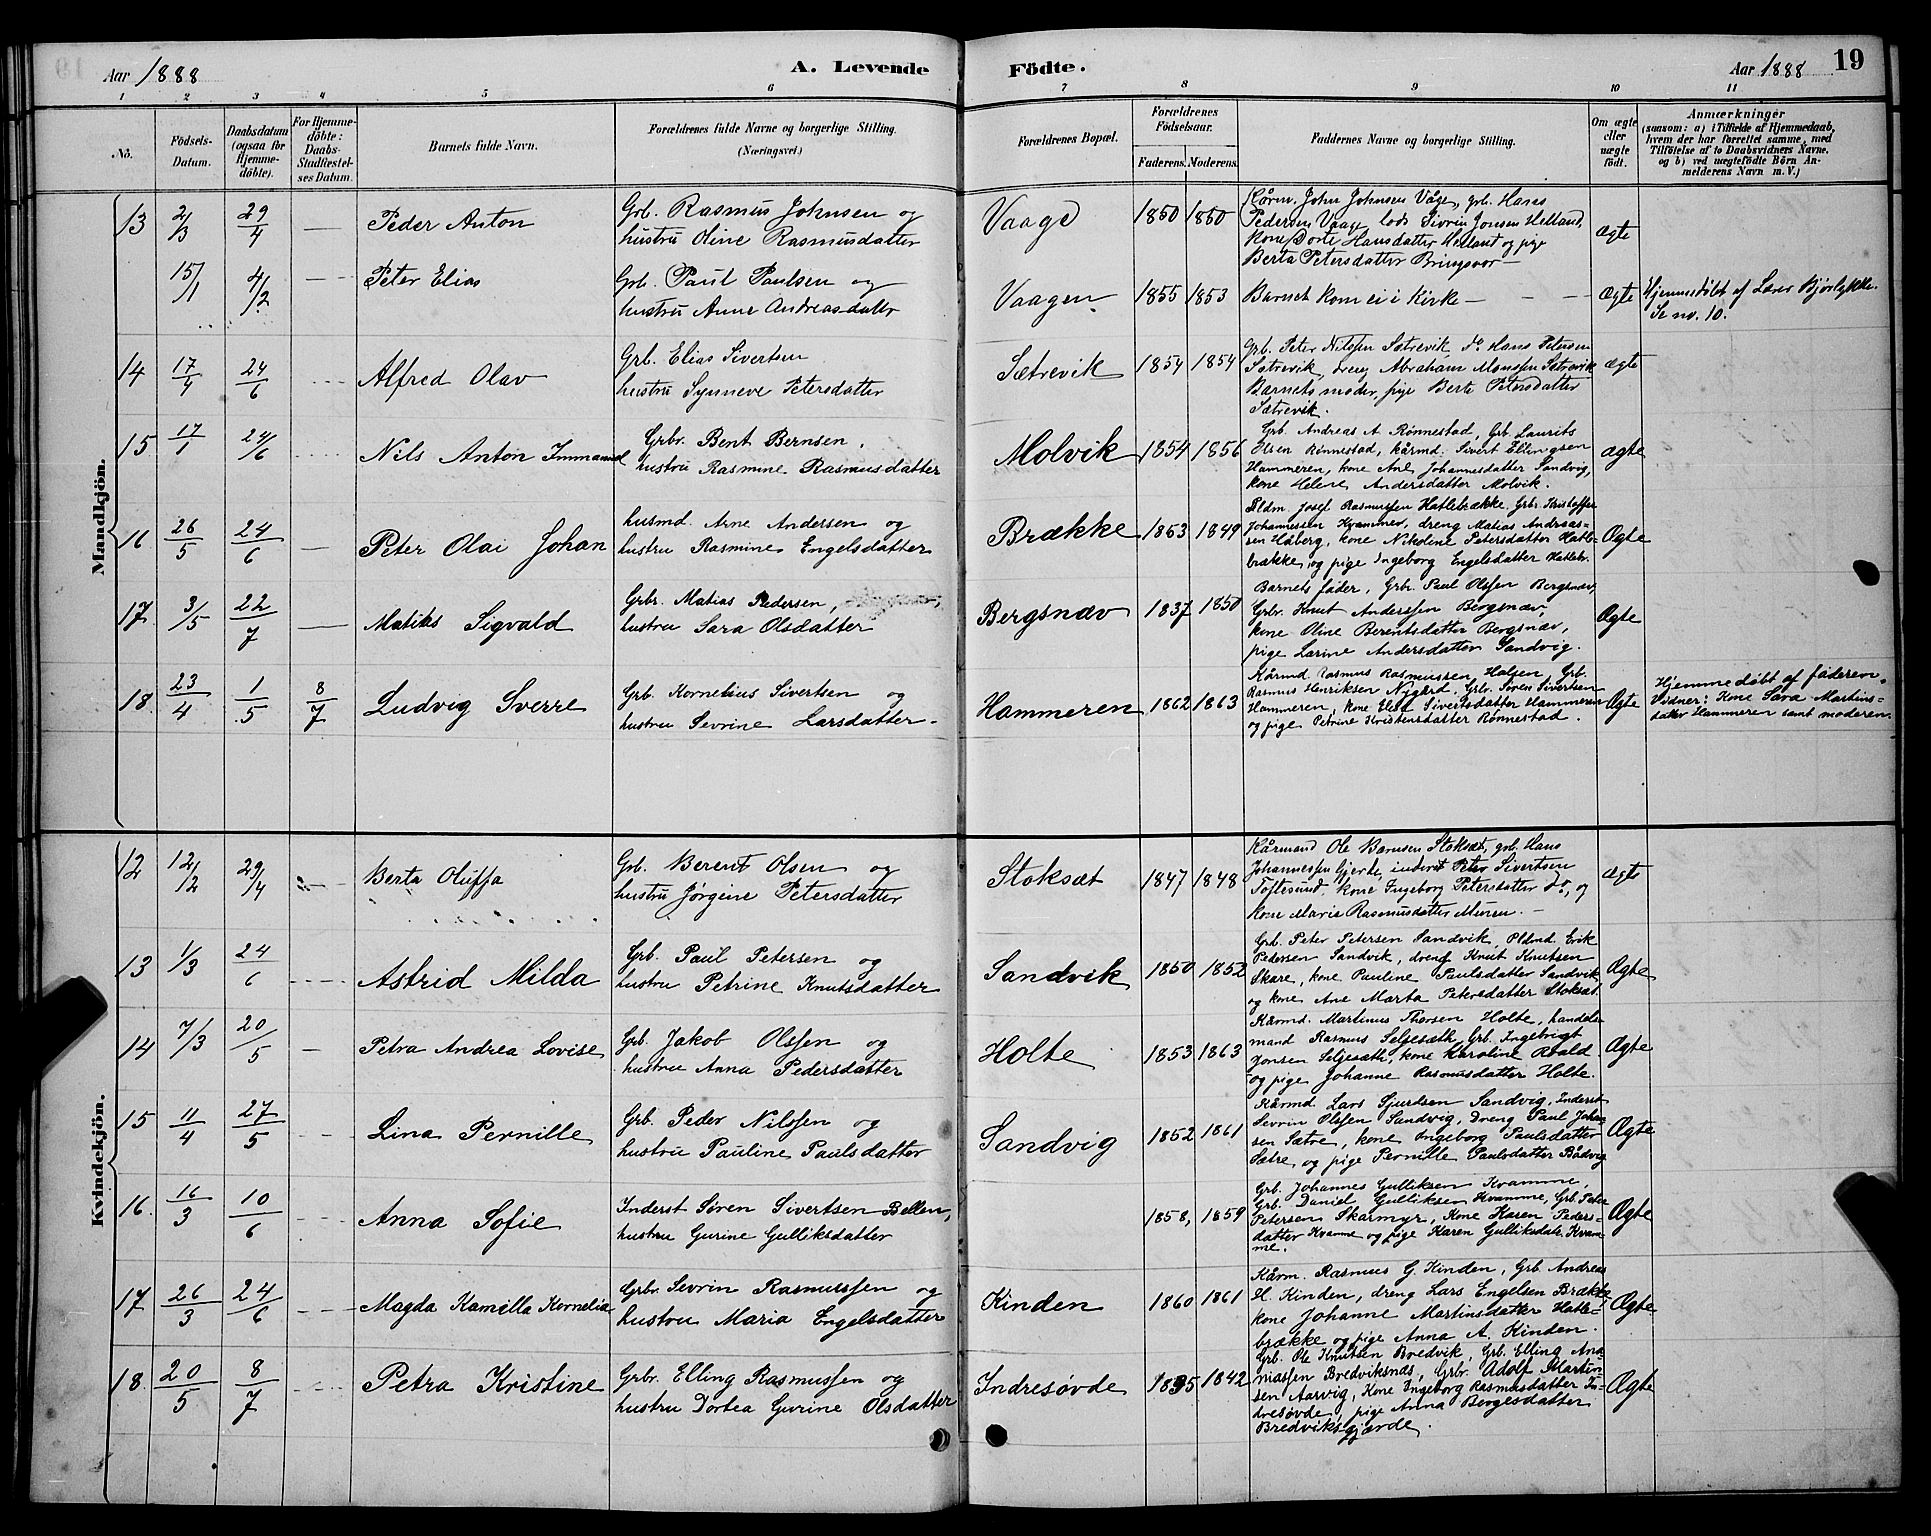 Aar 1888
A. Levende Födte.
Aar 1888 19
1 2 3 4 5 6 7 8 9 10 11
No.
Födsels-Datum.
Daabsdatum (ogsaa for Hjemme-döbte).
For Hjemme-döbte: Daabs-Stadfæstel-ses Datum.
Barnets fulde Navn.
Forældrenes fulde Navne og borgerlige Stilling. (Næringsvei.)
Forældrenes Bopæl.
Forældrenes Födselsaar.
Faderens. Moderens.
Faddernes Navne og borgerlige Stilling.
Om ægte eller uægte födt.
Anmærkninger (saasom: a) i Tilfælde af Hjemmedaab, hvem der har forrettet samme, med Tilföielse af to Daabsvidners Navne. og b) ved uægtefödte Börn An-melderens Navn m. V.)
Mandkjön.
13 2/3 29/4 — Peder Anton
Grb. Rasmus Johnsen og
hustru Oline Rasmusdatter
Vaage 1850 1850
Kårm. John Johnsen Våge, grb. Hans
Pedersen Vaage, lods Sivrin Jonsen Helland,
kone Dorte Hansdatter Helland og pige
Berta Petersdatter Bringsvor —
ægte
15/1 4/2 — Peter Elias
Grb. Paul Paulsen og
hustru Anne Andreasdatter
Vaagen 1855 1853
Barnet kom ei i Kirke — — —
Ægte
Hjemmedöbt af Lærer Bjørlykke.
Se no. 10.
14 17/4 24/6 Alfred Olav
Grb. Elias Sivertsen
hustru Synneve Petersdatter
Sætrevik 1854 1854
Grb. Peter Nilssen Sætrevik, do Hans Petersen
Sætrevik, dreng Abraham Monssen Sætrevik
Barnets moder, pige Berta Petersdatter
Sætrevik.
ægte
15 17/1 24/6 Nils Anton Immanuel
Grbr. Bent Bernsen,
hustru Rasmine Rasmusdatter
Molvik 1854 1856
Grb. Andreas A. Rønnestad, Grb. Laurits
Olsen Rønnestad, kårmd. Sivert Ellingsen
Hammeren, kone Ane Johannesdatter Sandvig,
kone Helene Andersdatter Molvik.
ægte
16 26/5 24/6 — Peter Olai Johan
husmd. Arne Andersen og
hustru Rasmine Engelsdatter
Brække 1853 1849
Pldm. Josef Rasmussen Hatlebrække, Grb. Kristoffer
Johannessen Kvammer, dreng Matias Andreas-
sen Håberg, kone Nikoline Petersdatter Hatle-
brække og pige Ingeborg Engelsdatter Hatlebr.
Ægte
17. 3/5 22/7 — Matias Sigvald
Grbr. Matias Pedersen,
hustru Sara Olsdatter
Bergsnæv 1837 1850
Barnets fader, Grbr. Paul Olssen Bergsnæv,
Grbr. Knut Anderssen Bergsnæv,
kone Oline Berentsdatter Bergsnæv,
pige Larine Andersdatter Sandvig.
Ægte
18. 23/4 1/5 8/7 Ludvig Sverre
Grb. Kornelius Sivertsen og
hustru Sevrine Larsdatter.
Hammeren 1862 1863
Kårmd. Rasmus Rasmussen Holsen, Grb.
Rasmus Henriksen Nygård, Grb. Søren Sivertsen
Hammeren, kone Elen Sivertsdatter Hammeren
og pige Petrine Kristensdatter Rønnestad.
Ægte
Hjemmedøbt af faderen.
Vidner: Kone Sara Martins-
datter Hammeren samt moderen.
Kvindekjön.
12 12/2 29/4 — Berta Oluffa
Grb. Berent Olsen og
hustru Jørgine Petersdatter
Stoksæt 1847 1848
Kårmand Ole Berntsen Stoksæt, grb. Hans
Johannessen Gjerde, inderst Peter Sivertsen
Toftesund, kone Ingeborg Petersdatter do, og
kone Marie Rasmusdatter Muren. —
ægte
13 1/3 24/6 Astrid Milda
Grb. Paul Petersen og
hustru Petrine Knutsdatter
Sandvik 1850 1852
Grb. Peter Petersen Sandvik, Pldmd. Erik
Pedersen Sandvik, dreng Knut Knutsen
Skare, kone Pauline Paulsdatter Sandvik
og kone Ane Marta Petersdatter Stoksæt.
Ægte
14 7/3 20/5 — Petra Andrea Lovise
Grb. Jakob Olssen og
hustru Anna Pedersdatter
Holte 1853 1863
Kårmd. Martinus Thorsen Holte, handels-
mand Rasmus Seljesæth, Grb. Ingebrigt
Jonsen Seljesæth, kone Karoline Roald
og pige Johanne Rasmusdatter Holte.
Ægte
15 11/4 27/5 Lina Pernille
Grb. Peder Nilssen og
hustru Pauline Paulsdatter
Sandvig 1852 1861
Kårmd. Lars Sjurdsen Sandvig, Inderst
Sevrin Olssen Sandvig, dreng Paul Johan-
sen Sætre, kone Ingeborg Paulsdatter
Sætre, og pige Pernille Paulsdatter Bådvig
Ægte
16. 16/3 10/6 Anna Sofie
Inderst Søren Sivertsen Bellen,
hustru Gurine Gulliksdatter
1858, 1859
Grb. Johannes Gulliksen Kvamme,
Grb. Daniel Gulliksen Kvamme, Grb. Peter
Petersen Skarmyr, Kone Karen Peders-
datter Kvamme og pige Karen Gulliksdatr. Kvam-
me.
Ægte
17 26/3 24/6 Magda Kamilla Kornelia
Grbr. Sevrin Rasmussen og
hustru Maria Engelsdatter
Kinden 1860 1861
Kårm. Rasmus G. Kinden, Grb. Andreas
H. Kinden, dreng Lars Engelsen Brække
kone Johanne Martinsdatter Hatle-
brække og pige Anna A. Kinden.
Ægte
18. 20/5 8/7 Petra Kristine
Grbr. Elling Rasmussen og
hustru Dortea Gurine Olsdatter
Indresøvde 1835 1842
Grb. Ole Knutsen Bredvik, Grb. Elling Ana-
niassen Bredviksnæs, Grbr. Adolf Martin-
sen Aarvig, Kone Ingeborg Rasmusdatter In-
dresøvde, pige Anna Børgesdatter
Bredviksgjærde.
Ægte